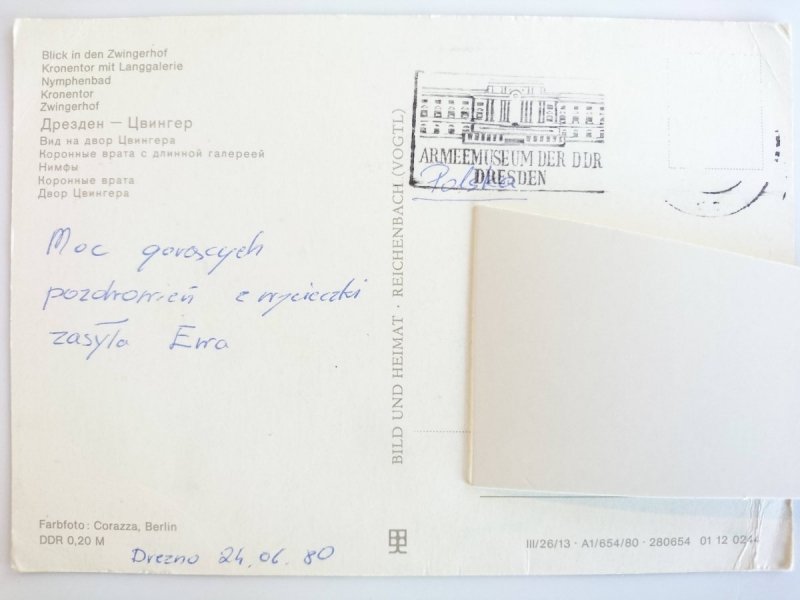 Blick in den Zwingerhof
Kronentor mit Langgalerie
Nymphenbad
Kronentor
Zwingerhof
Дрезден — Цвингер
Вид на двор Цвингера
Коронные врата с длинной галереей
Нимфы
Коронные врата
Двор Цвингера
Moc gorących
pozdrowień z wycieczki
zasyła Ewa
Farbfoto: Corazza, Berlin
DDR 0,20 M
Drezno 24.06.80
BILD UND HEIMAT · REICHENBACH (VOGTL)
ARMEEMUSEUM DER DDR
DRESDEN
Polska
III/26/13 · A1/654/80 · 280654 01 12 0244